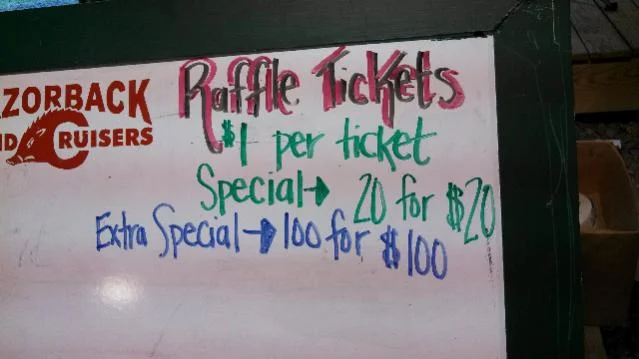 AZORBACK
D CRUISERS
Raffle Tickets
$1 per ticket
Special→ 20 for $20
Extra Special→100 for $100